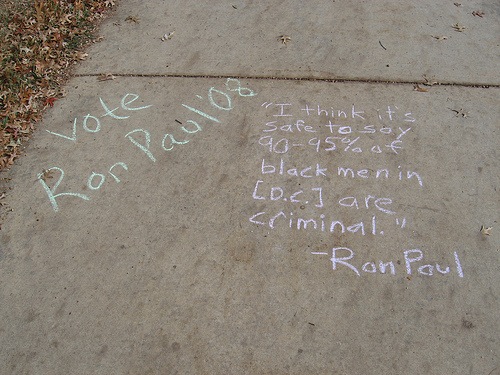 vote
Ron Paul '08
"I think it's
safe to say
90-95% of
black men in
[D.C.] are
criminal."
-Ron Paul